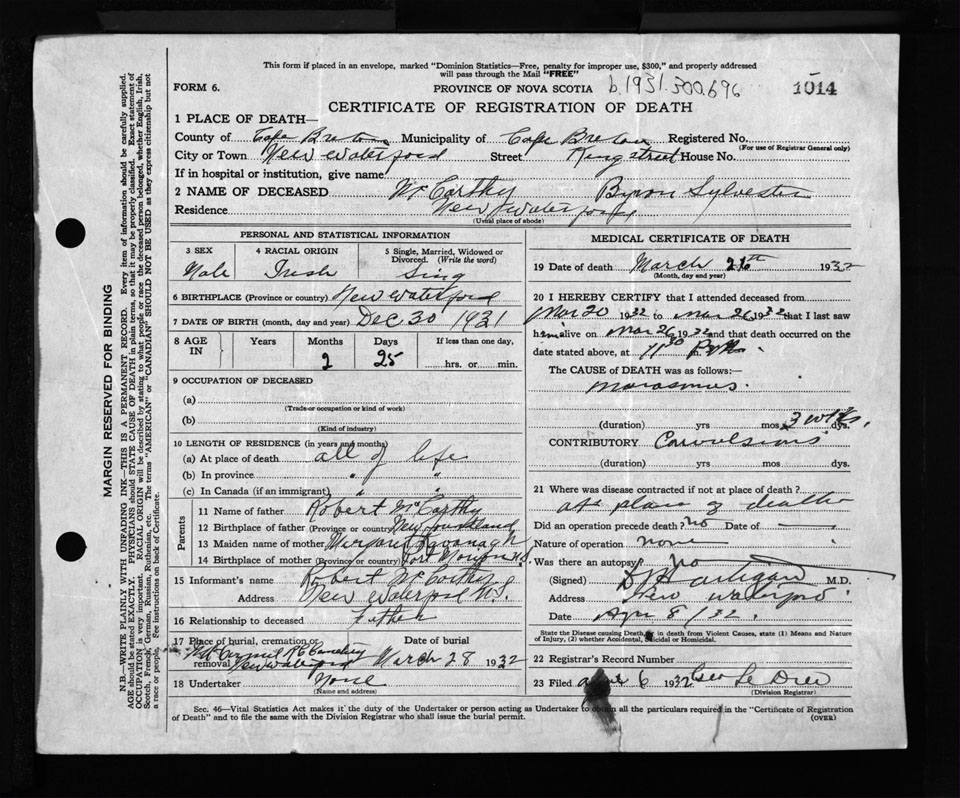 This form if placed in an envelope, marked "Dominion Statistics—Free, penalty for improper use, $300," and properly addressed
will pass through the Mail "FREE"
FORM 6.
PROVINCE OF NOVA SCOTIA b.1931.300.696 1014
CERTIFICATE OF REGISTRATION OF DEATH
1 PLACE OF DEATH—
County of Cape Breton Municipality of Cape Breton Registered No.
(For use of Registrar General only)
City or Town New Waterford Street King street House No.
If in hospital or institution, give name
2 NAME OF DECEASED McCarthy Byron Sylvester
Residence New Waterford
(Usual place of abode)
PERSONAL AND STATISTICAL INFORMATION
3 SEX 4 RACIAL ORIGIN 5 Single, Married, Widowed or
Divorced. (Write the word)
Male Irish Sing
6 BIRTHPLACE (Province or country) New Waterford
7 DATE OF BIRTH (month, day and year) Dec 30 1931
8 AGE IN Years Months Days If less than one day,
2 25 hrs. or min.
9 OCCUPATION OF DECEASED
(a)
(Trade or occupation or kind of work)
(b)
(Kind of industry)
10 LENGTH OF RESIDENCE (in years and months)
(a) At place of death all of life
(b) In province " "
(c) In Canada (if an immigrant) " "
Parents
11 Name of father Robert McCarthy
12 Birthplace of father (Province or country) New Foundland
13 Maiden name of mother Margaret Kavanagh
14 Birthplace of mother (Province or country) Port Morien N.S.
15 Informant's name Robert McCarthy
Address New Waterford N.S.
16 Relationship to deceased Father
17 Place of burial, cremation or removal Mt Carmel R C Cemetery
New Waterford
Date of burial
March 28 1932
18 Undertaker None
(Name and address)
MEDICAL CERTIFICATE OF DEATH
19 Date of death March 26th 1932
(Month, day and year)
20 I HEREBY CERTIFY that I attended deceased from
Mar 20 1932 to Mar 26 1932 that I last saw
him alive on Mar 26 1932 and that death occurred on the
date stated above, at 11 30 P.M.
The CAUSE of DEATH was as follows:
marasmus.
(duration) yrs mos 3 wks. dys.
CONTRIBUTORY Convulsions
(duration) yrs. mos. dys.
21 Where was disease contracted if not at place of death?
At place of death
Did an operation precede death? no Date of
Nature of operation none
Was there an autopsy? No
(Signed) Hartigan M.D.
Address New Waterford
Date Apr 8/32
State the Disease causing Death, or in death from Violent Causes, state (1) Means and Nature
of Injury, (2) whether Accidental, Suicidal or Homicidal.
22 Registrar's Record Number
23 Filed 6 1932 Geo Le Drew
(Division Registrar)
Sec. 46—Vital Statistics Act makes it the duty of the Undertaker or person acting as Undertaker to obtain all the particulars required in the "Certificate of Registration
of Death" and to file the same with the Division Registrar who shall issue the burial permit.
(OVER)
MARGIN RESERVED FOR BINDING
N.B.—WRITE PLAINLY WITH UNFADING INK—THIS IS A PERMANENT RECORD. Every item of information should be carefully supplied.
AGE should be stated EXACTLY. PHYSICIANS should STATE CAUSE OF DEATH in plain terms, so that it may be properly classified. Exact statement of
OCCUPATION is very important. RACIAL ORIGIN will be described by stating to what people or race the deceased person belonged, whether English, Irish,
Scotch, French, German, Russian, Ruthenian, etc. The terms "AMERICAN" or "CANADIAN" SHOULD NOT BE USED as they express citizenship but not
a race or people. See instructions on back of Certificate.